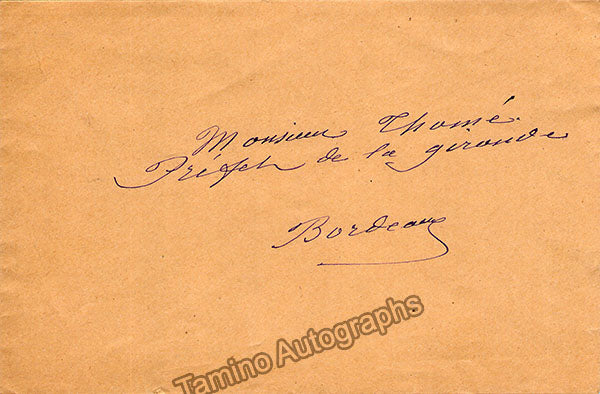 Monsieur Thomé.
Préfet de la gironde
Bordeaux
Tamino Autographs